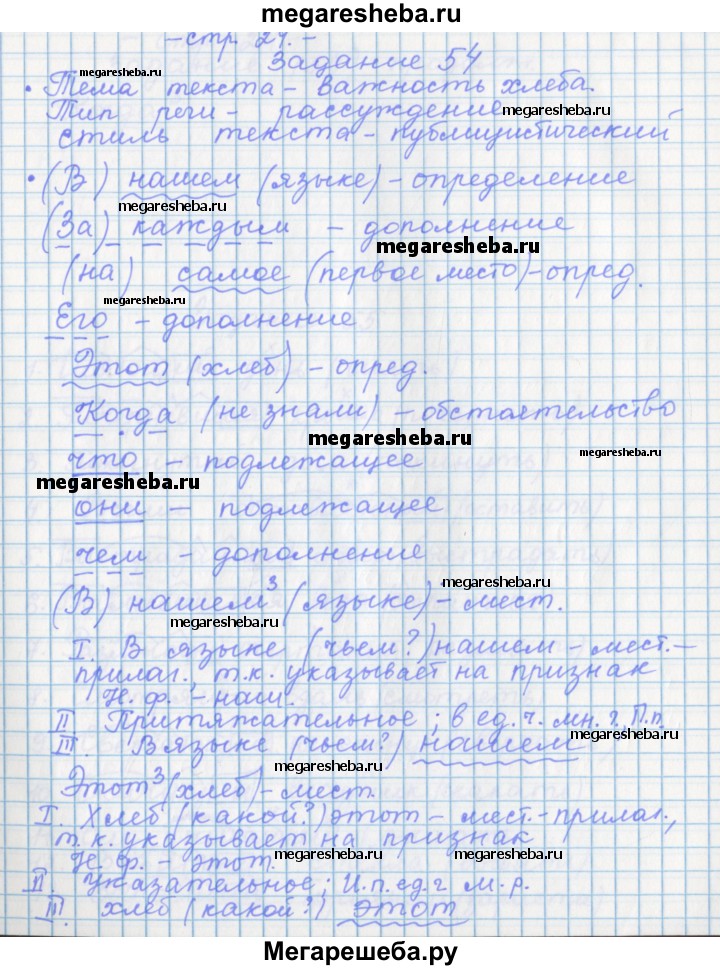 megaresheba.ru
- стр. 27. -
Задание 54
megaresheba.ru
• Тема текста - важность хлеба.
Тип речи - рассуждение
megaresheba.ru
стиль текста - публицистический
• (В) нашем (языке) - определение
megaresheba.ru
(За) каждым - дополнение
megaresheba.ru
(на) самое (первое место) - опред.
megaresheba.ru
Его - дополнение
Этот (хлеб) - опред.
Когда (не знали) - обстоятельство
megaresheba.ru
что - подлежащее
megaresheba.ru
они - подлежащее
чем - дополнение
megaresheba.ru
(В) нашем³ (языке) - мест.
megaresheba.ru
I. В языке (чьем?) нашем - мест.-
прилаг., т.к. указывает на признак
Н. ф. - наш.
II Притяжательное; в ед. ч. м. г. П.п
megaresheba.ru
III. В языке (чьем?) нашем
megaresheba.ru
Этот³ (хлеб) - мест.
megaresheba.ru
I. Хлеб (какой?) этот - мест.-прилаг.,
т.к. указывает на признак
Н. ф. - этот.
megaresheba.ru
megaresheba.ru
II. Указательное; И.п. ед. ч м. р.
III хлеб (какой?) этот
megaresheba.ru
Мегарешеба.ру